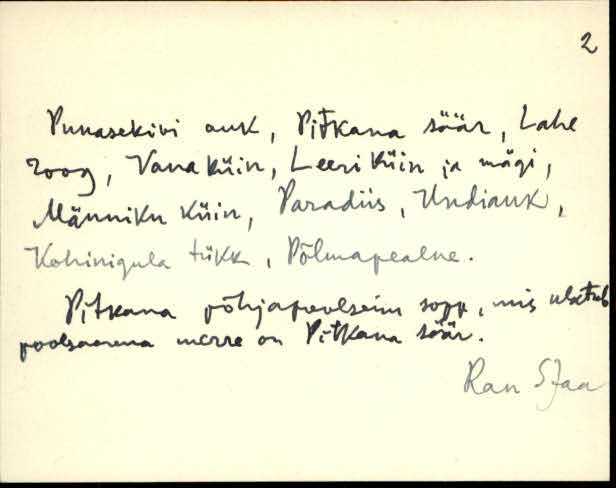 2
Punasekivi auk, Pitkana säär, Lahe
roog, Vanaküin, Leeri küin ja mägi,
Männiku küin, Paradiis, Undiauk,
Kohinigula tükk, Põlmapealne.
Pitkana põhjapoolseim sopp, mis ulatub
poolsaarena merre on Pitkana säär.
Ran